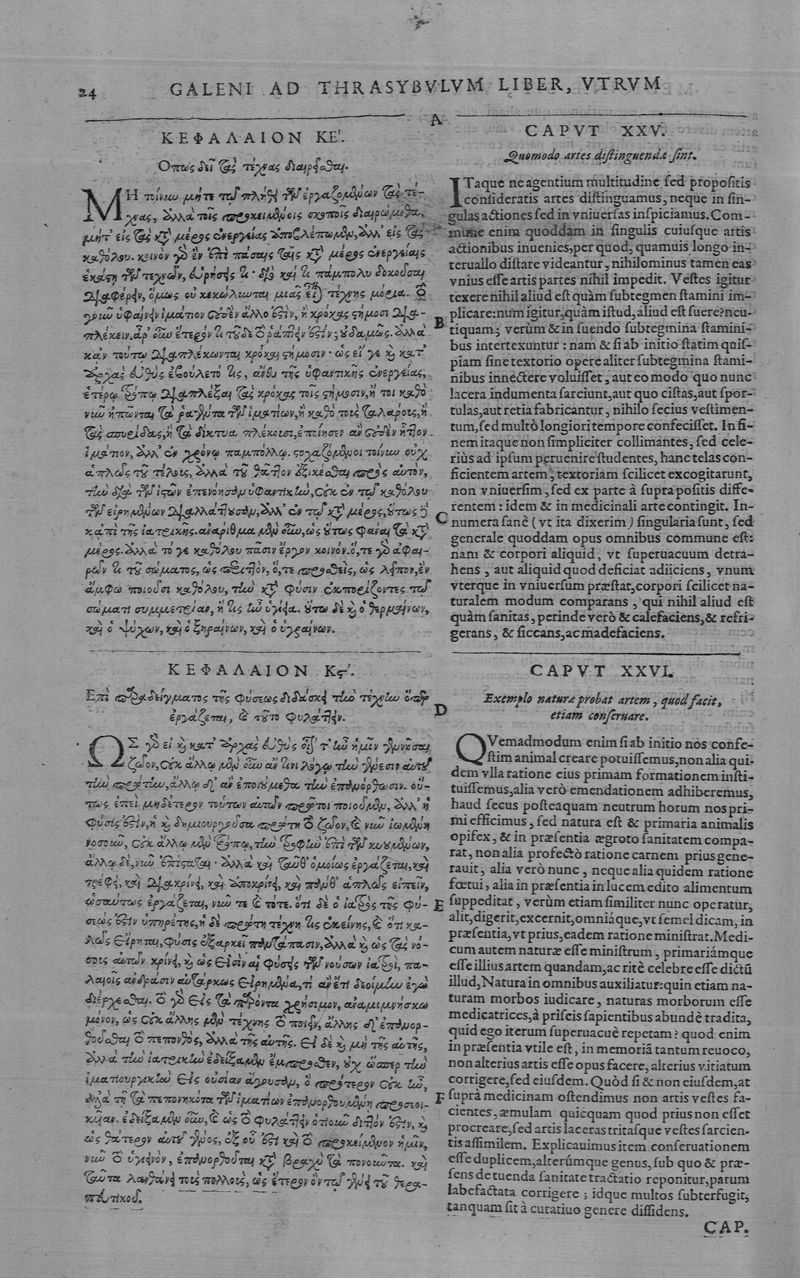 24 GALENI AD THRASYBVLVM LIBER, VTRVM
ΚΕΦΑΛΑΙΟΝ ΚΕ΄.
Ὅπως δεῖ τὰς τέχνας διαιρεῖσθαι.
ΜΗ τοίνυν μήτε τῷ πλήθει τῶν ἐργαζομένων τὰς τέ-
χνας, ἀλλὰ τοῖς προκειμένοις σκοποῖς διαιρώμεθα,
μήτ' εἰς τὰς κατὰ μέρος ἐνεργείας ἀποβλέπωμεν, ἀλλ' εἰς τὰς
καθόλου. κοινὸν γὰρ ἐν ἐπὶ πάσαις ταῖς κατὰ μέρος ἐνεργείαις
ἑκάστη τῶν τεχνῶν, εὑρήσεις τι· διὸ καὶ τι πάμπολυ δοκοῦσαι
διαφέρειν, ὅμως οὐ κεκώλυνται μιᾶς εἶναι τέχνης μόρια. τὸ
γοῦν ὑφαίνειν ἱμάτιον οὐδὲν ἄλλο ἐστὶν, ἢ κρόκας στήμοσι δια-
πλέκειν. ἆρ' οὖν ἕτερόν τι τοῦδε τὸ ῥάπτειν ἐστίν; οὐδαμῶς. ἀλλὰ
κἀν τούτῳ διαπλέκονται κρόκαι στήμοσιν· ὡς εἴ γε καὶ κατ'
ἀρχὰς εὐθὺς ἐβούλετό τις, ἄνευ τῆς ὑφαντικῆς ἐνεργείας,
ἑτέρῳ τρόπῳ διαπλέξαι τὰς κρόκας τοῖς στήμοσιν, ἤτοι καθὸ
νῦν ἠπῶνται τὰ ῥαγέντα τῶν ἱματίων, ἢ καθὸ τοὺς ταλάρους, ἢ
τὰς σπυρίδας, ἢ τὰ δίκτυα πλέκουσι, ἐποίησεν ἂν οὐδὲν ἧττον
ἱμάτιον, ἀλλ' ἐν χρόνῳ παμπόλλῳ. στοχαζόμενοι τοίνυν οὐχ
ἁπλῶς τοῦ τέλους, ἀλλὰ τοῦ θᾶττον ἐξικέσθαι πρὸς αὐτὸν,
τὴν διὰ τῶν ἱστῶν ἐπενόησαν ὑφαντικὴν, οὐκ ἐν τῷ καθόλου
τῶν εἰρημένων διαλλάττουσαν, ἀλλ' ἐν τῷ κατὰ μέρος, οὕτως
κἀπὶ τῆς ἰατρικῆς. ἀνάριθμα μὲν οὖν, ὡς οὕτως φάναι τὰ κατὰ
μέρος. ἀλλὰ τό γε καθόλου πᾶσιν ἔργον κοινόν. ὅ, τε γὰρ ἀφαι-
ρῶν τι τοῦ σώματος, ὡς περιττὸν, ὅ, τε προσθεὶς, ὡς λεῖπον, ἓν
ἄμφω ποιοῦσι καθόλου, τὴν κατὰ φύσιν ἐκπορίζοντες τῷ
σώματι συμμετρίαν, ἥ τις ἦν ὑγίεια. οὕτω δὲ καὶ ὁ θερμαίνων,
καὶ ὁ ψύχων, καὶ ὁ ξηραίνων, καὶ ὁ ὑγραίνων.
ΚΕΦΑΛΑΙΟΝ Κς΄.
Ἐπὶ παραδείγματος τῆς φύσεως διδάσκει τὴν τέχνην ὅπερ
ἐργάζεται, καὶ τοῦτο φυλάττειν.
ΩΣ γὰρ εἰ καὶ κατ' ἀρχὰς εὐθὺς οἷόν τ' ἦν ἡμῖν γεννῆσαι
ζῶον, οὐκ ἄλλῳ μὲν οὖν ἄν τινι λόγῳ τὴν γένεσιν αὐτοῦ
τὴν πρώτην, ἄλλῳ δ' ἂν ἐποιούμεθα τὴν ἐπανόρθωσιν. οὕ-
τως ἐπεὶ μηδέτερον τούτων αὐτῶν πρῶτοι ποιοῦμεν, ἀλλ' ἡ
φύσις ἐστὶν, ἡ καὶ δημιουργοῦσα πρώτη τὸ ζῶον, καὶ νῦν ἰωμένη
νοσοῦν, οὐκ ἄλλῳ μὲν τρόπῳ, τὴν σάρκα ἐπὶ τῶν κυουμένων,
ἄλλῳ δὲ, νῦν ἐργάζεται· ἀλλὰ καὶ ταῦθ' ὁμοίως ἐργάζεται, καὶ
τρέφει, καὶ διακρίνει, καὶ ἀποκρίνει, καὶ πάνθ' ἁπλῶς εἰπεῖν,
ὡσαύτως ἐργάζεται, νῦν τε καὶ τότε. ὅτι δὲ ὁ ἰατρὸς τῆς φύ-
σεώς ἐστιν ὑπηρέτης, ἡ δὲ πρώτη τέχνη τις ἐκείνης, καὶ ὅτι κα-
λῶς εἴρηται, φύσις ἐξαρκεῖ παντάπασιν, ἀλλὰ καὶ ὡς τὰς νό-
σους αὐτῶν κρίνει, καὶ ὡς εἰσὶν αἱ φύσεις τῶν νούσων ἰατροὶ, πα-
λαιοῖς ἀνδράσιν αὐτάρκως εἰρημένα, τί ἂν ἔτι δεοίμην ἐγὼ
διέρχεσθαι. τὸ γὰρ εἰς τὰ παρόντα χρήσιμον, ἀναμιμνήσκω
μόνον, ὡς οὐκ ἄλλης μὲν τέχνης τὸ ποιεῖν, ἄλλης δ' ἐπανορ-
θοῦσθαι τὸ πεπονθὸς, ἀλλὰ τῆς αὐτῆς. εἰ δὲ καὶ μὴ τῆς αὐτῆς,
ἀλλὰ τὴν ἰατρικὴν ἐδείξαμεν ἔμπροσθεν, οὐχ ὥσπερ τὴν
ἱματιουργικὴν εἰς οὐσίαν ἄγουσαν, ὃ πρότερον οὐκ ἦν,
ἀλλὰ τῇ τὰ πεπονηκότα τῶν ἱματίων ἐπανορθουμένῃ προσεοι-
κυῖαν. ἐδείξαμεν οὖν, καὶ ὡς τὸ φυλάττειν ὁτιοῦν διττόν ἐστιν, καὶ
ὡς θάτερον αὐτοῦ γένος, ἐξ οὗ ἐστι καὶ τὸ προκείμενον ἡμῖν,
νῦν τὸ ὑγιεινὸν, ἐπανορθοῦται κατὰ βραχὺ τὰ πονοῦντα. καὶ
ταῦτα λανθάνει τοὺς πολλοὺς, ὡς ἕτερον ὂν τῷ γένει τοῦ θερα-
πευτικοῦ.
A
B
C
D
E
F
CAPVT XXV.
Quomodo artes distinguendæ sint.
ITaque ne agentium multitudine sed propositis
consideratis artes distinguamus, neque in sin-
gulas actiones sed in vniuersas inspiciamus. Com-
mune enim quoddam in singulis cuiusque artis
actionibus inuenies, per quod, quamuis longo in-
teruallo distare videantur, nihilominus tamen eas
vnius esse artis partes nihil impedit. Vestes igitur
texere nihil aliud est quàm subtegmen stamini im-
plicare: num igitur, quàm istud, aliud est suere? neu-
tiquam; verùm & in suendo subtegmina stamini-
bus intertexuntur: nam & si ab initio statim quis-
piam sine textorio opere aliter subtegmina stami-
nibus innectere voluisset, aut eo modo quo nunc
lacera indumenta sarciunt, aut quo cistas, aut spor-
tulas, aut retia fabricantur, nihilo secius vestimen-
tum, sed multò longiori tempore confecisset. In fi-
nem itaque non simpliciter collimantes, sed cele-
riùs ad ipsum peruenire studentes, hanc telas con-
ficientem artem, textoriam scilicet excogitarunt,
non vniuersim, sed ex parte à supra positis diffe-
rentem: idem & in medicinali arte contingit. In-
numera sanè (vt ita dixerim) singularia sunt, sed
generale quoddam opus omnibus commune est:
nam & corpori aliquid, vt superuacuum detra-
hens, aut aliquid quod deficiat adiiciens, vnum
vterque in vniuersum præstat, corpori scilicet na-
turalem modum comparans, qui nihil aliud est
quàm sanitas, perinde verò & calefaciens, & refri-
gerans, & siccans, ac madefaciens.
CAPVT XXVI.
Exemplo naturæ probat artem, quod facit,
etiam conseruare.
QVemadmodum enim si ab initio nos confe-
stim animal creare potuissemus, non alia qui-
dem vlla ratione eius primam formationem insti-
tuissemus, alia verò emendationem adhiberemus,
haud secus posteaquam neutrum horum nos pri-
mi efficimus, sed natura est & primaria animalis
opifex, & in præsentia ægroto sanitatem compa-
rat, non alia profectò ratione carnem prius gene-
rauit, alia verò nunc, neque alia quidem ratione
fœtui, alia in præsentia in lucem edito alimentum
suppeditat, verùm etiam similiter nunc operatur,
alit, digerit, excernit, omniáque, vt semel dicam, in
præsentia, vt prius, eadem ratione ministrat. Medi-
cum autem naturæ esse ministrum, primariámque
esse illius artem quandam, ac ritè celebre esse dictũ
illud, Natura in omnibus auxiliatur: quin etiam na-
turam morbos iudicare, naturas morborum esse
medicatrices, à priscis sapientibus abundè tradita,
quid ego iterum superuacuè repetam? quod enim
in præsentia vtile est, in memoriã tantum reuoco,
non alterius artis esse opus facere, alterius vitiatum
corrigere, sed eiusdem. Quòd si & non eiusdem, at
suprà medicinam ostendimus non artis vestes fa-
cientes, æmulam quicquam quod prius non esset
procreare, sed artis laceras tritasque vestes sarcien-
tis assimilem. Explicauimus item conseruationem
esse duplicem, alterúmque genus, sub quo & præ-
sens de tuenda sanitate tractatio reponitur, parum
labefactata corrigere; idque multos subterfugit,
tanquam sit à curatiuo genere dissidens.
CAP.